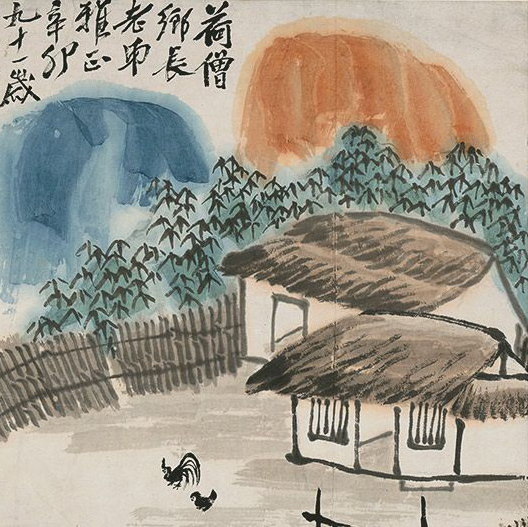 荷僧
鄉長
老
雅正
辛卯
九十一歲